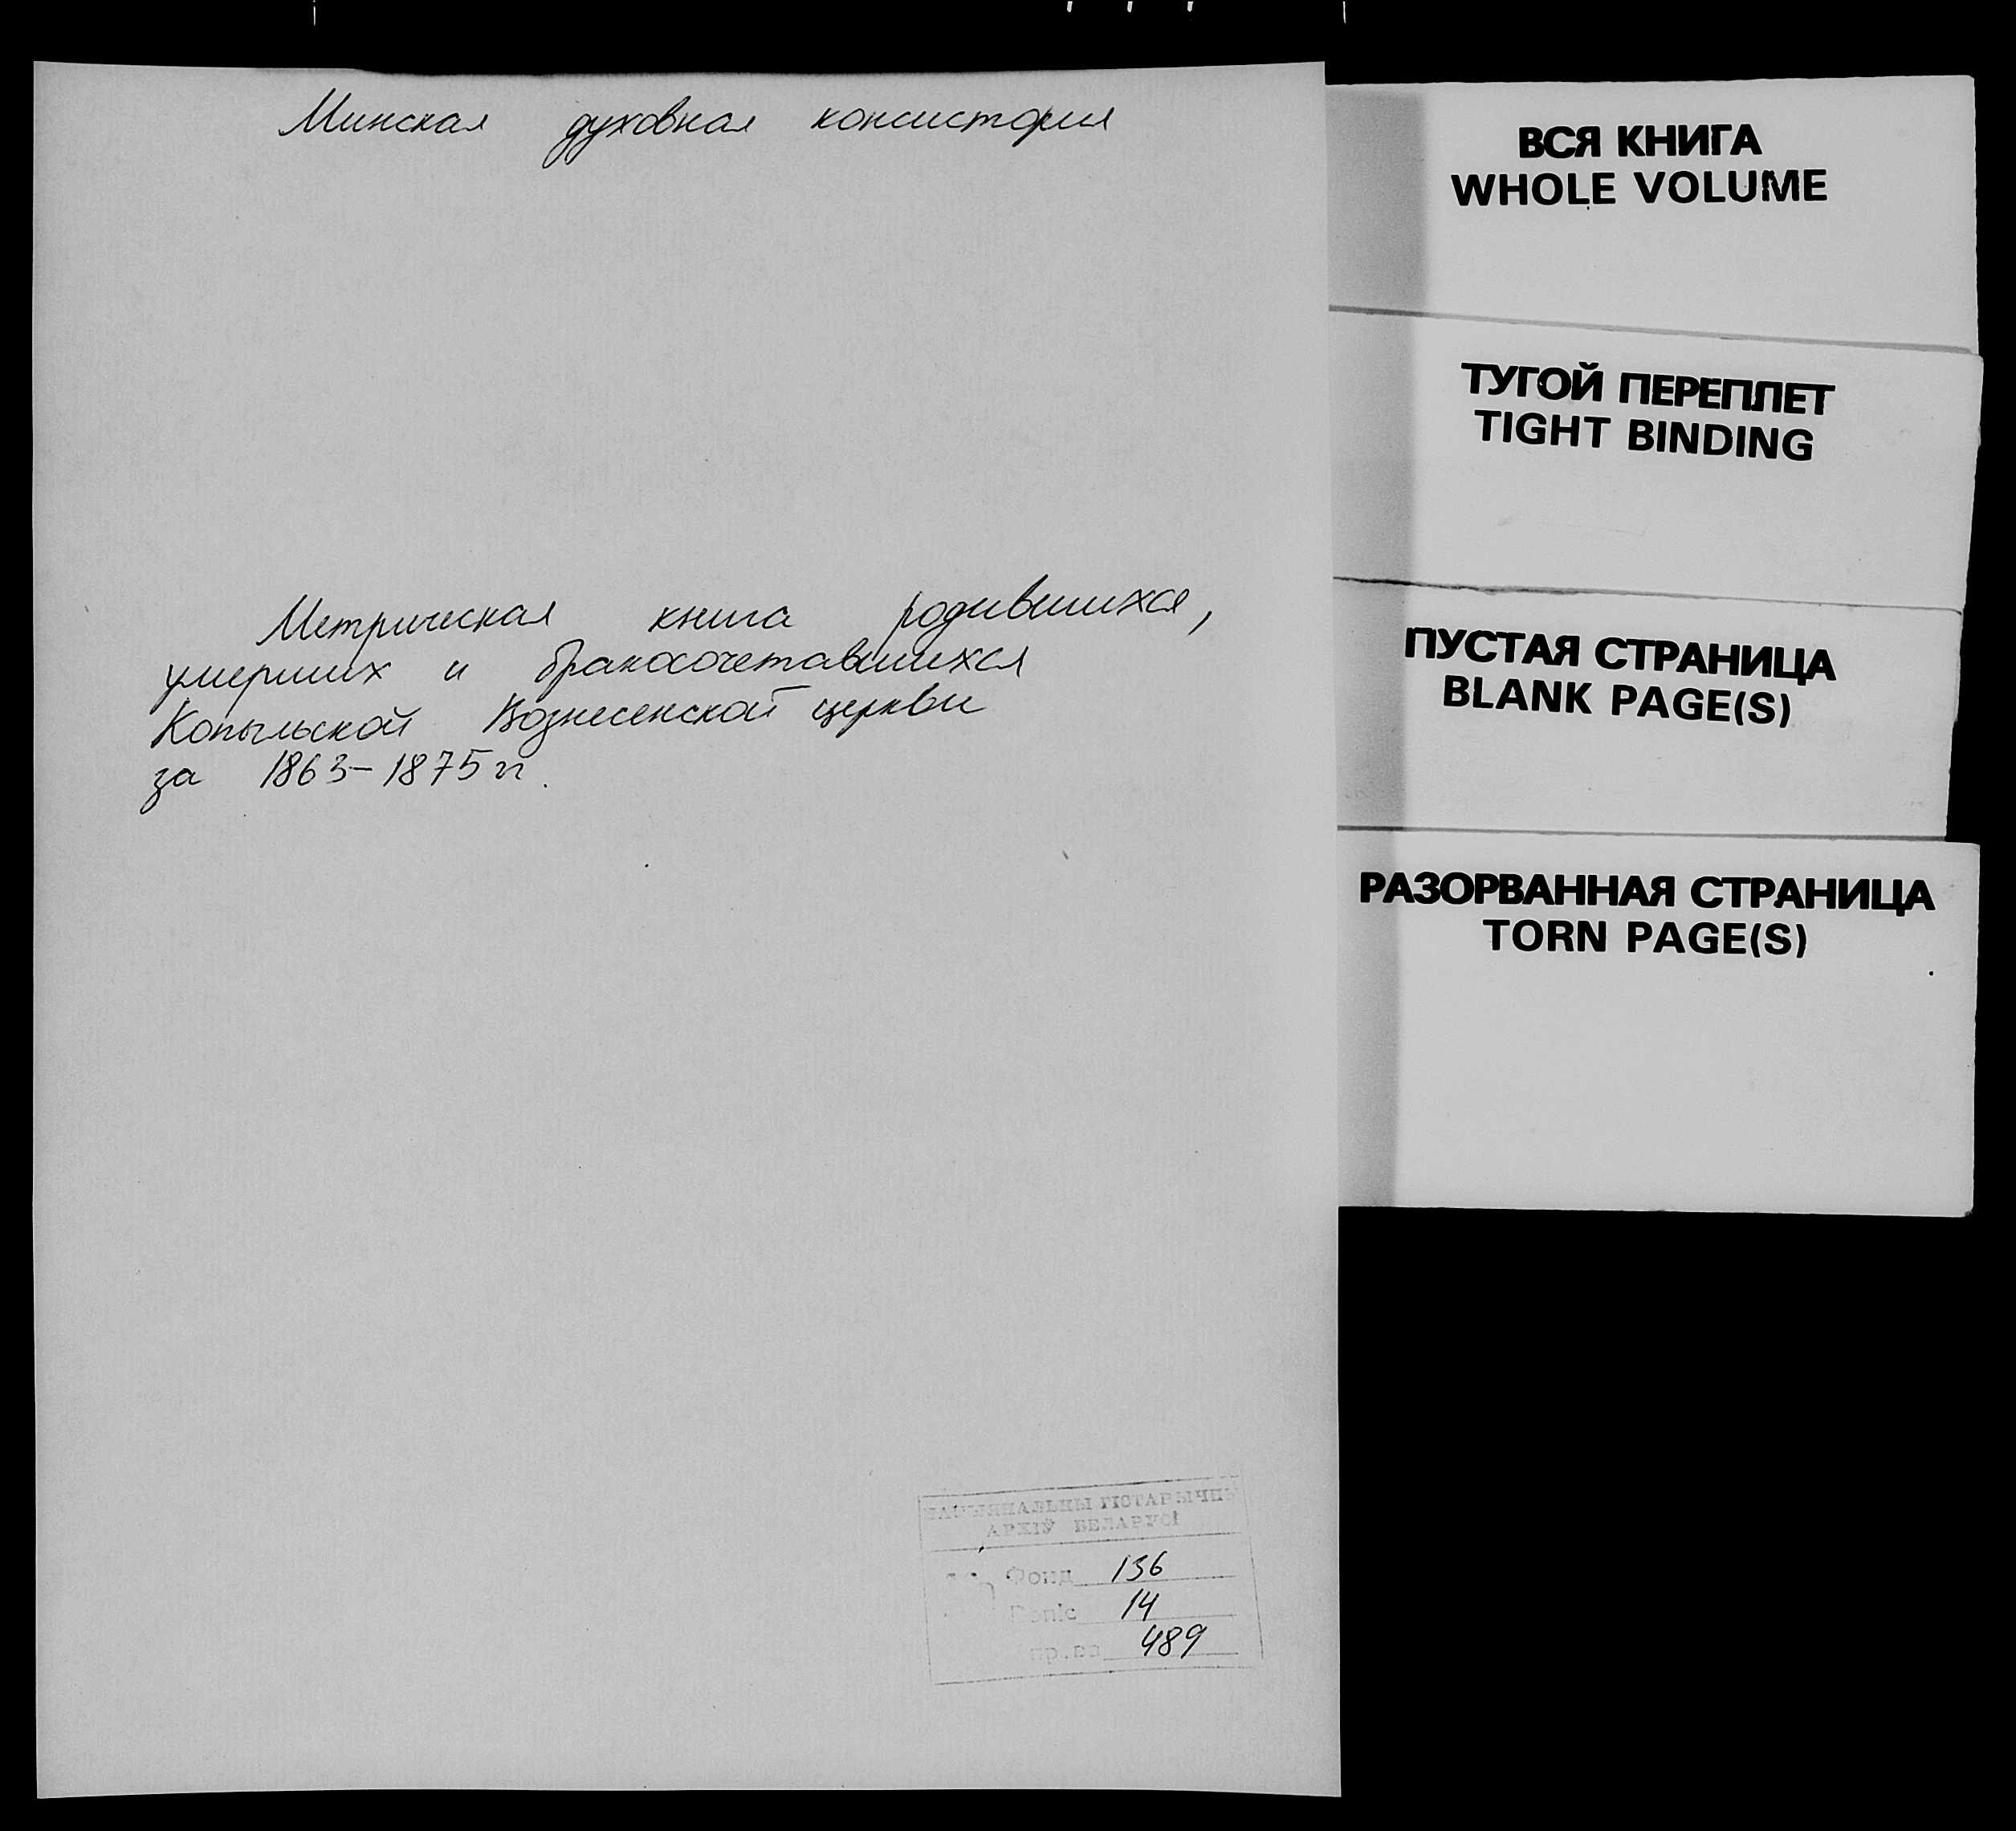 Минская духовная консистория
Метрическая книга родившихся,
умерших и бракосочетавшихся
Копыльской Вознесенской церкви
за 1863-1875 гг.
НАЦЫЯНАЛЬНЫ ГІСТАРЫЧНЫ
АРХІЎ БЕЛАРУСІ
Фонд 136
Вопіс 14
спр.ва 489
ВСЯ КНИГА
WHOLE VOLUME
ТУГОЙ ПЕРЕПЛЕТ
TIGHT BINDING
ПУСТАЯ СТРАНИЦА
BLANK PAGE(S)
РАЗОРВАННАЯ СТРАНИЦА
TORN PAGE(S)